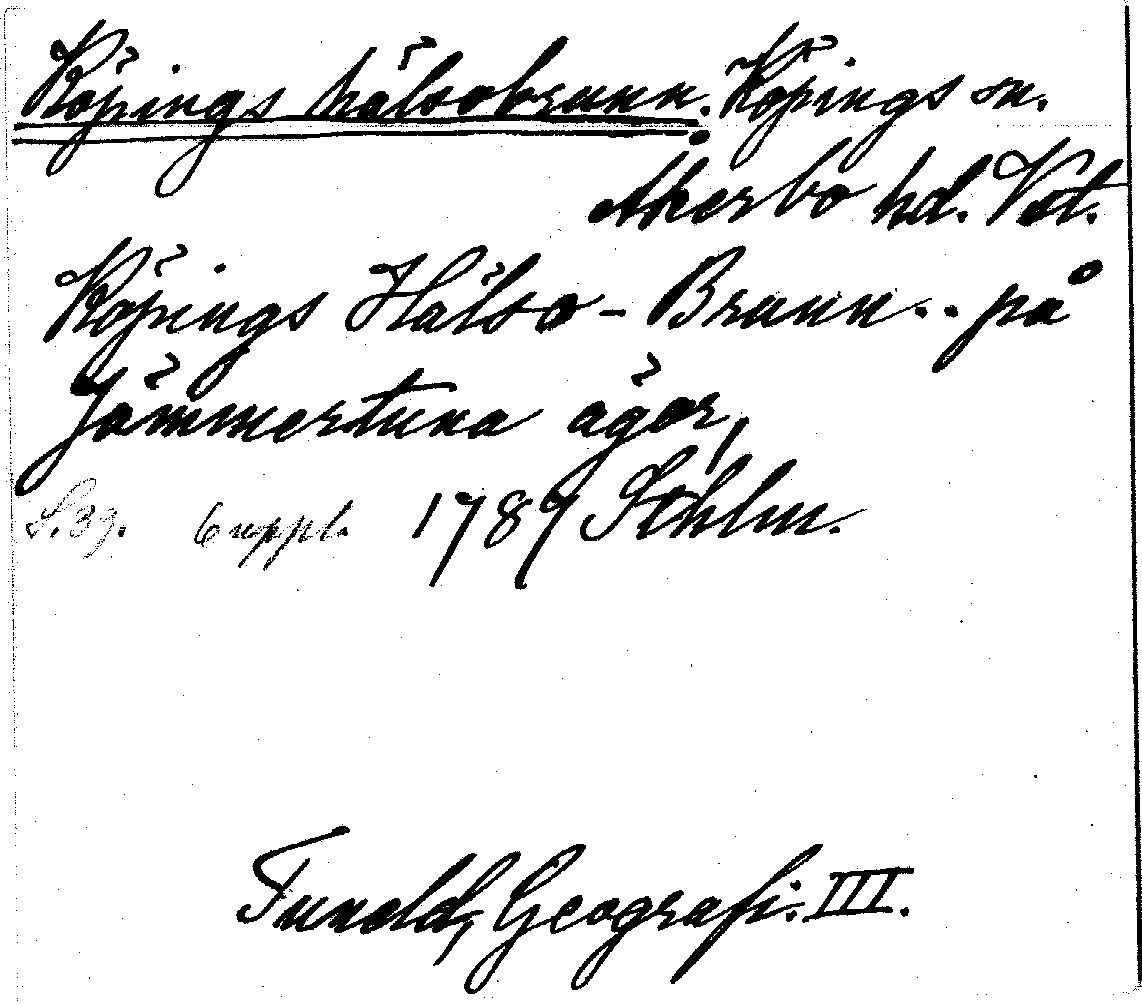 Köpings hälsobrunn. Köpings sn.
Åkerbo hd. Vstm.
Köpings Hälso-Brunn.. på
Jämmertuna ägor,
S. 39. 6 uppl. 1789 Sthlm.
Tuneld, Geografi. III.